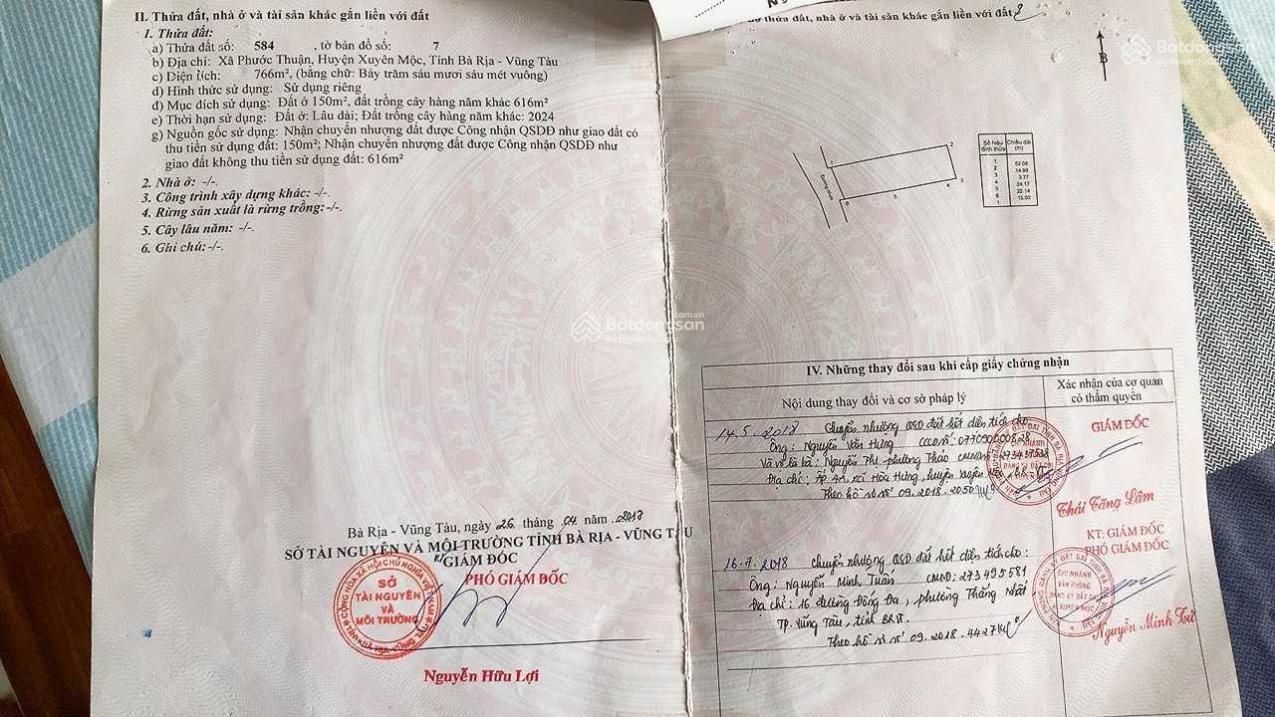 II. Thửa đất, nhà ở và tài sản khác gắn liền với đất
1. Thửa đất:
a) Thửa đất số: 584 , tờ bản đồ số: 7
b) Địa chỉ: Xã Phước Thuận, Huyện Xuyên Mộc, Tỉnh Bà Rịa - Vũng Tàu
c) Diện tích: 766m², (bằng chữ: Bảy trăm sáu mươi sáu mét vuông)
d) Hình thức sử dụng: Sử dụng riêng
đ) Mục đích sử dụng: Đất ở 150m², đất trồng cây hàng năm khác 616m²
e) Thời hạn sử dụng: Đất ở: Lâu dài; Đất trồng cây hàng năm khác: 2024
g) Nguồn gốc sử dụng: Nhận chuyển nhượng đất được Công nhận QSDĐ như giao đất có
thu tiền sử dụng đất: 150m²; Nhận chuyển nhượng đất được Công nhận QSDĐ như
giao đất không thu tiền sử dụng đất: 616m²
2. Nhà ở: -/-.
3. Công trình xây dựng khác: -/-.
4. Rừng sản xuất là rừng trồng: -/-.
5. Cây lâu năm: -/-.
6. Ghi chú: -/-.
Bà Rịa - Vũng Tàu, ngày 26 tháng 04 năm 2017
SỞ TÀI NGUYÊN VÀ MÔI TRƯỜNG TỈNH BÀ RỊA - VŨNG TÀU
GIÁM ĐỐC
PHÓ GIÁM ĐỐC
SỞ
TÀI NGUYÊN
VÀ
MÔI TRƯỜNG
Nguyễn Hữu Lợi
thửa đất, nhà ở và tài sản khác gắn liền với đất
B
Batdongsan
Số hiệu đỉnh thửa Chiều dài (m)
1
2 52.08
3 14.99
4 3.77
5 24.17
6 22.14
1 15.00
1
2
3
4
5
6
Batdongsan
.com.vn
IV. Những thay đổi sau khi cấp giấy chứng nhận
Nội dung thay đổi và cơ sở pháp lý
Xác nhận của cơ quan
có thẩm quyền
14.5.2018 Chuyển nhượng QSD đất hết diện tích cho
Ông: Nguyễn Văn Hưng CCCD số
Và vợ là bà: Nguyễn Thị Phương Thảo CMND
Địa chỉ: Ấp 4A, xã Hòa Hưng, huyện Xuyên Mộc
Theo hồ sơ số 09.2018.2050
GIÁM ĐỐC
Thái Tăng Lâm
16.7.2018 Chuyển nhượng QSD đất hết diện tích cho:
Ông: Nguyễn Minh Tuấn CMND: 273495581
Địa chỉ: 16 đường Đống Đa, phường Thắng Nhất
TP. Vũng Tàu, tỉnh BRVT
Theo hồ sơ số 09.2018.4427
KT: GIÁM ĐỐC
PHÓ GIÁM ĐỐC
CHI NHÁNH
VĂN PHÒNG
ĐĂNG KÝ ĐẤT ĐAI
XUYÊN MỘC
Nguyễn Minh Tứ